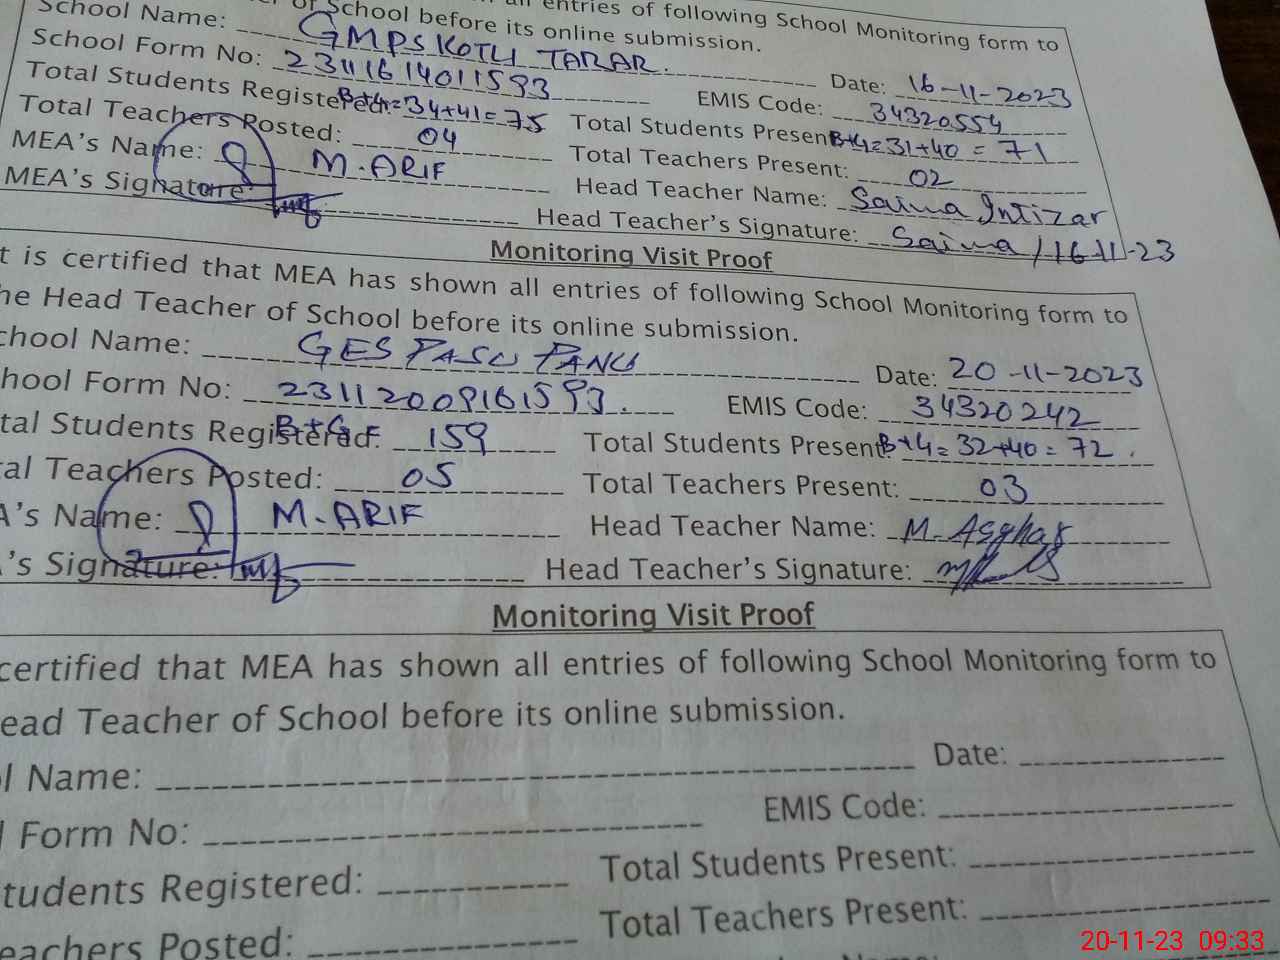 all entries of following School Monitoring form to
of School before its online submission.
School Name: GMPS KOTLI TARAR. Date: 16-11-2023
School Form No: 23111614011593 EMIS Code: 34320554
Total Students Registered: B+G=34+41=75 Total Students Present: B+G=31+40=71
Total Teachers Posted: 04 Total Teachers Present: 02
MEA's Name: M.ARIF Head Teacher Name: Saima Intizar
MEA's Signature: Head Teacher's Signature: Saima /16-11-23
Monitoring Visit Proof
t is certified that MEA has shown all entries of following School Monitoring form to
he Head Teacher of School before its online submission.
chool Name: GES Date: 20-11-2023
hool Form No: 23112009161593. EMIS Code: 34320242
tal Students Registered: 159 Total Students Present: B+G=32+40=72.
al Teachers Posted: 05 Total Teachers Present: 03
A's Name: M.ARIF Head Teacher Name: M. Asghar
's Signature: Head Teacher's Signature:
Monitoring Visit Proof
certified that MEA has shown all entries of following School Monitoring form to
ead Teacher of School before its online submission.
l Name: Date:
l Form No: EMIS Code:
tudents Registered: Total Students Present:
eachers Posted: Total Teachers Present:
20-11-23 09:33